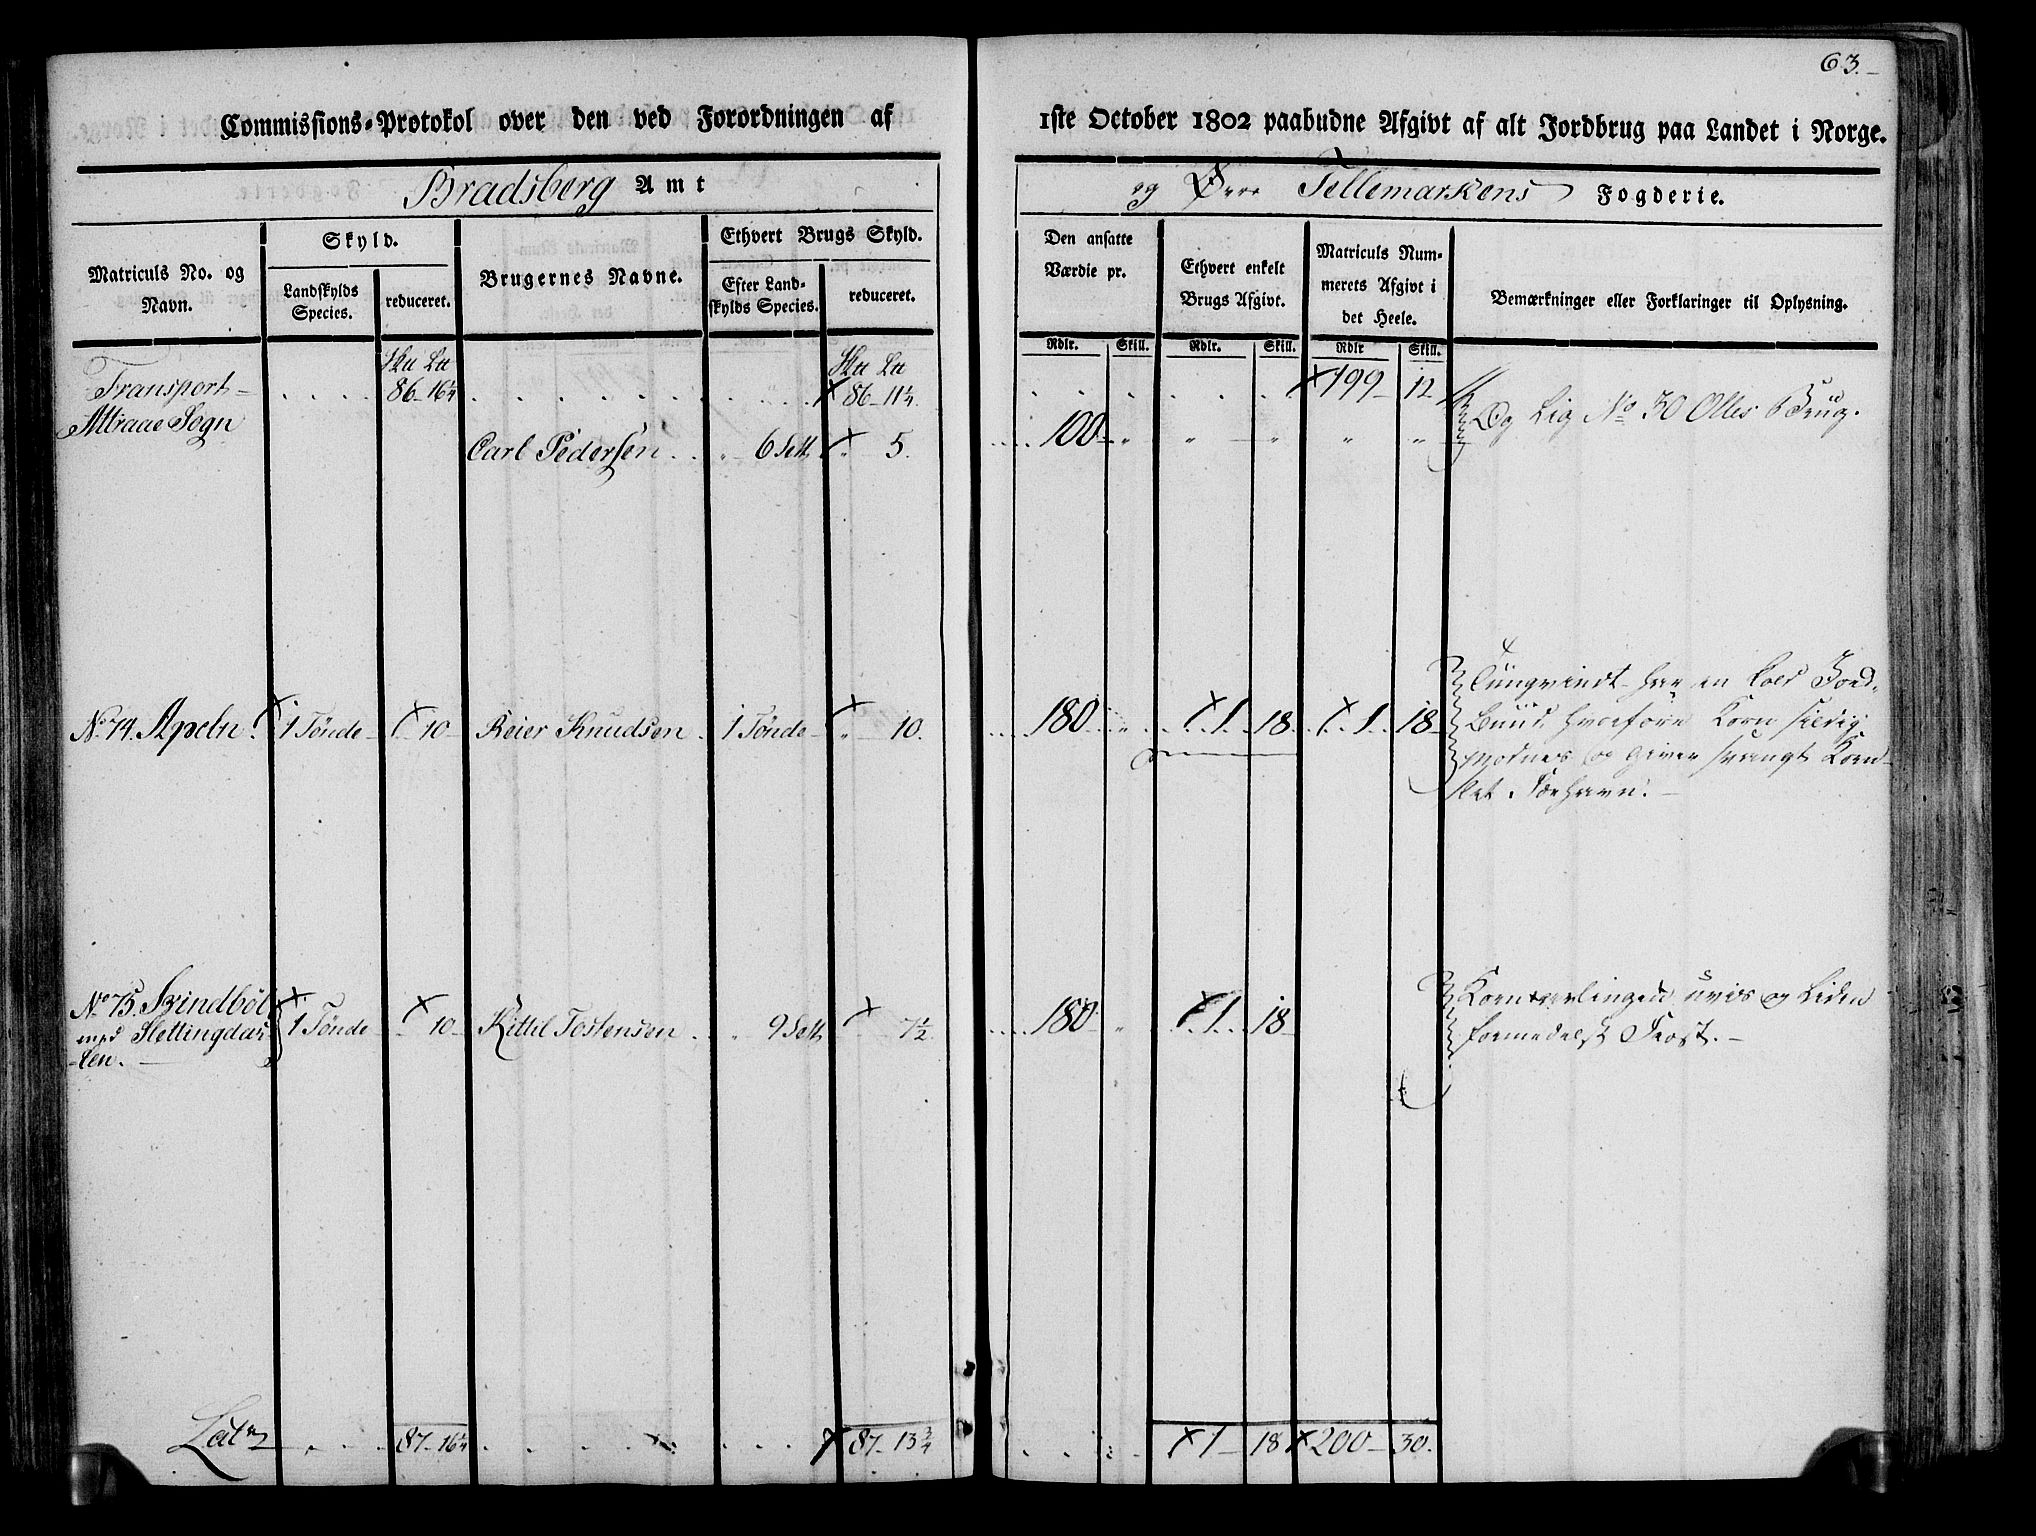 63.
Commissions-Protokol over den ved Forordningen af 1ste October 1802 paabudne Afgivt af alt Jordbrug paa Landet i Norge.
Bradsberg Amt og Øvre Tellemarkens Fogderie.
Matriculs No. og Navn.
Skyld.
Landskylds Species.
reduceret.
Brugernes Navne.
Ethvert Brugs Skyld.
Efter Landskylds Species.
reduceret.
Den ansatte Værdie pr.
Ethvert enkelt Brugs Afgivt.
Matriculs Nummerets Afgivt i det Heele.
Bemærkninger eller Forklaringer til Oplysning.
Rdlr. Skill. Rdlr. Skill. Rdlr Skill.
Transport 86-16¼ 86-11¼. 199 12
Attraae Sogn
Carl Pedersen 6 Sett 5. 100 Og Lig No 30 Olles Brug.
No 74. Apeln. 1 Tönde 10 Reier Knudsen 1 Tönde 10. 180 1 18 1 18 Tungvindt har en Cold Jord-
Bund hvorfore Korn sildig
modnes og giver svangt Korn
No 75. Svindböl 1 Tönde 10 Kittil Tostensen 9 Sett 7½ 180 1 18 uvis og Liden
med Slettingdar- formedelst Frost.
-len.
Lat. 87-16¼ 87-13¾ 1 18 200 30.